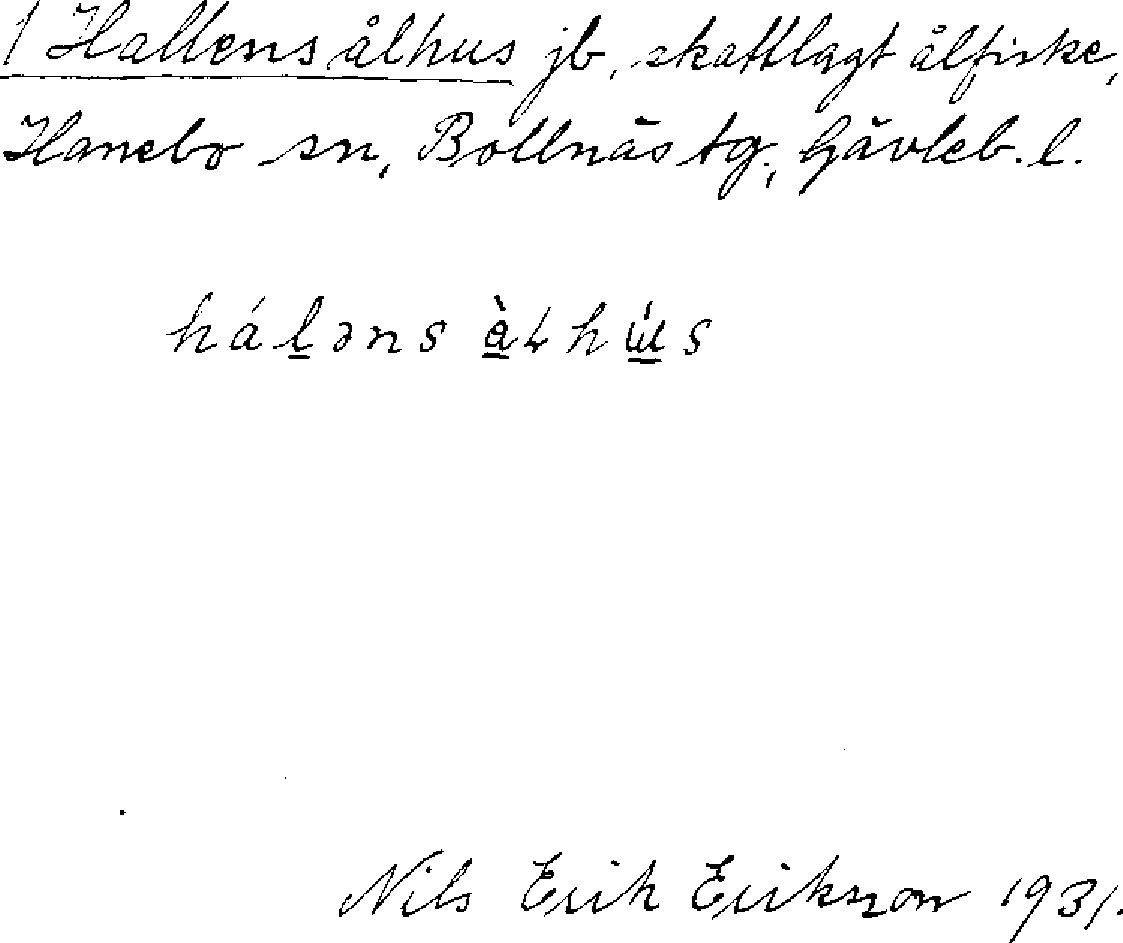 1 Hallens ålhus jb, skattlagt ålfiske,
Hanebo sn, Bollnäs tg, Gävleb. l.
háḻəns
Nils Erik Erikson 1931.